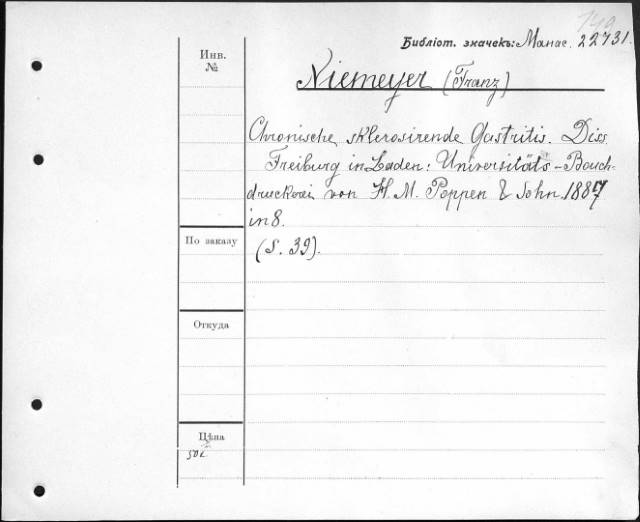 149
Библіот. значекъ: Манас. 22731.
Инв.
№
Niemeyer (Franz)
Chronische sklerosirende Gastritis. Diss.
Freiburg in Baden: Universitäts-Bouch-
druckerei von H. M. Poppen & Sohn. 1887
in 8.
По заказу
(S. 39).
Откуда
Цѣна
50к